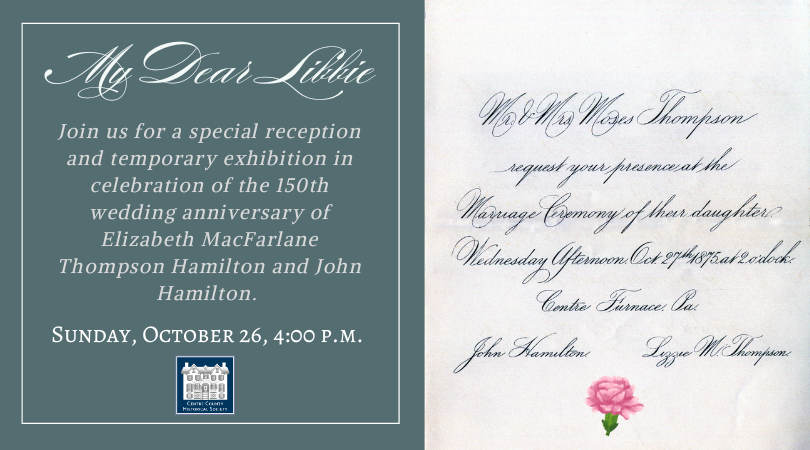 My Dear Libbie
Join us for a special reception
and temporary exhibition in
celebration of the 150th
wedding anniversary of
Elizabeth MacFarlane
Thompson Hamilton and John
Hamilton.
Sunday, October 26, 4:00 p.m.
Centre County
Historical Society
Mr. & Mrs. Moses Thompson
request your presence at the
Marriage Ceremony of their daughter.
Wednesday Afternoon. Oct. 27th 1875. at 2 o'clock.
Centre Furnace. Pa.
John Hamilton. Lizzie M. Thompson.